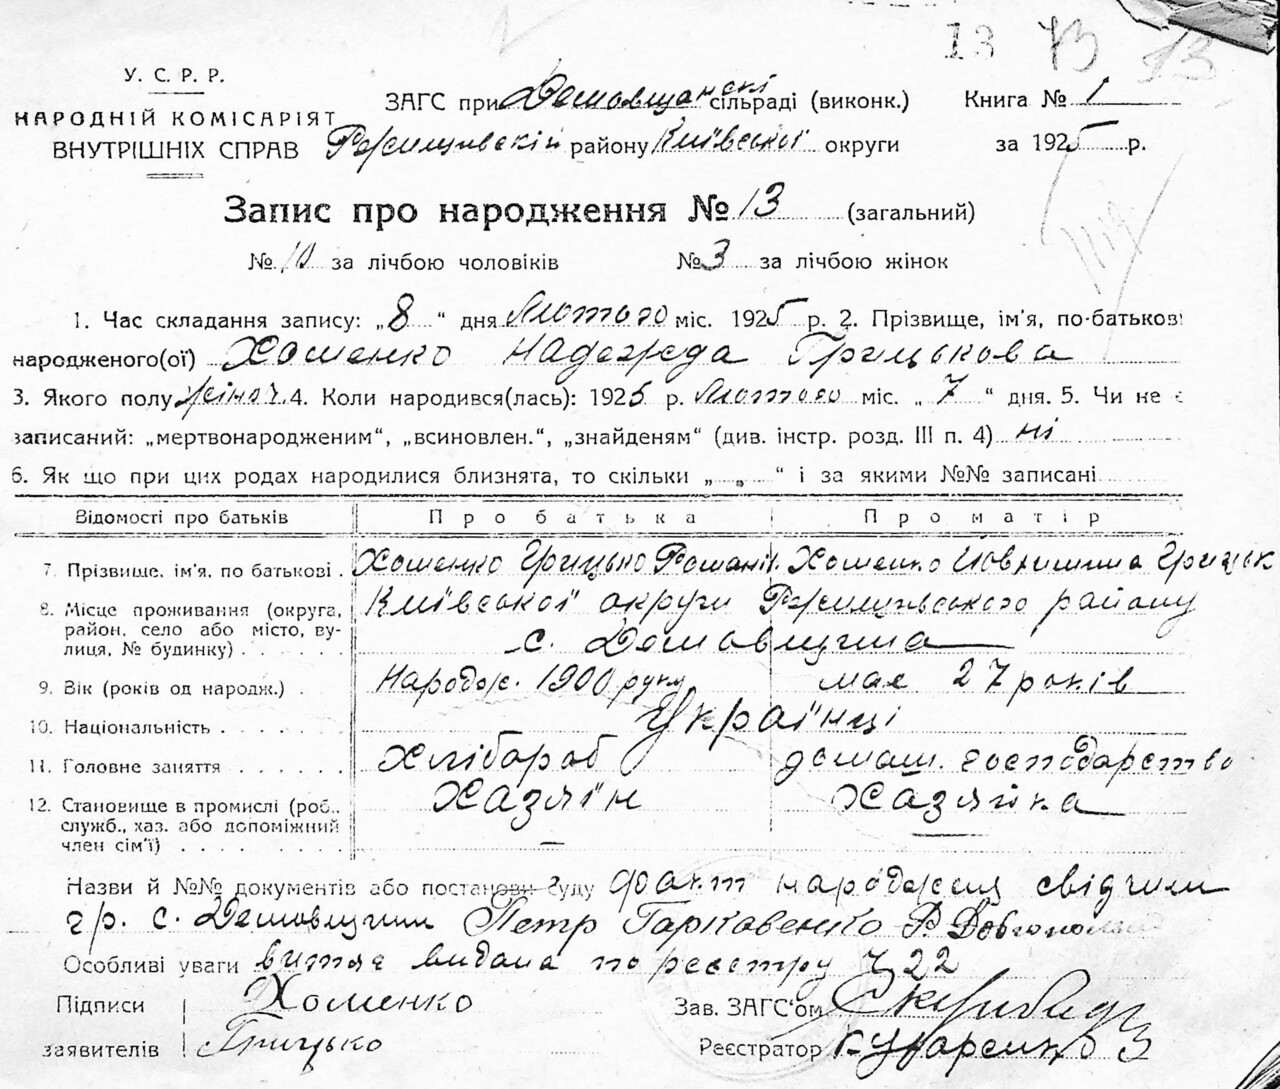 13 73 13
У. С. Р. Р.
НАРОДНІЙ КОМІСАРІЯТ
ВНУТРІШНІХ СПРАВ
ЗАГС при Демовщанскі сільраді (виконк.) Книга № 1
Ржищівскій району Київської округи за 1925 р.
Запис про народження № 13 (загальний)
№ 10 за лічбою чоловіків № 3 за лічбою жінок
1. Час складання запису: „8“ дня Лютого міс. 1925 р. 2. Прізвище, ім'я, по-батькові
народженого(ої) Хоменко Надежда Грицькова
3. Якого полу жіноч. 4. Коли народився(лась): 1925 р. Лютого міс. „7“ дня. 5. Чи не є
записаний: „мертвонародженим“, „всиновлен.“, „знайденям“ (див. інстр. розд. III п. 4) ні
6. Як що при цих родах народилися близнята, то скільки „ „ “ і за якими №№ записані
Відомості про батьків Про батька Про матір
7. Прізвище, ім'я, по батькові . Хоменко Грицько Романів. Хоменко Грицьк
8. Місце проживання (округа, Київської округи Ржищівського району
район, село або місто, ву- с. Демовщина
лиця, № будинку) . . . . .
9. Вік (років од народж.) . Народж. 1900 руку має 27 років
10. Національність . . . . . . Українці
11. Головне заняття . . . . . . Хлібароб домаш. господарство
12. Становище в промислі (роб., Хазяїн Хазяйка
служб., хаз. або допоміжний
член сім'ї) . . . . . . . . —
Назви й №№ документів або постанови суду факт народження свідчили
гр. с. Демовщини Петр Гарковенко Р.
Особливі уваги витяг видана по реєстру Ч 22
Підписи Хоменко Зав. ЗАГС'ом
заявителів Грицько Реєстратор